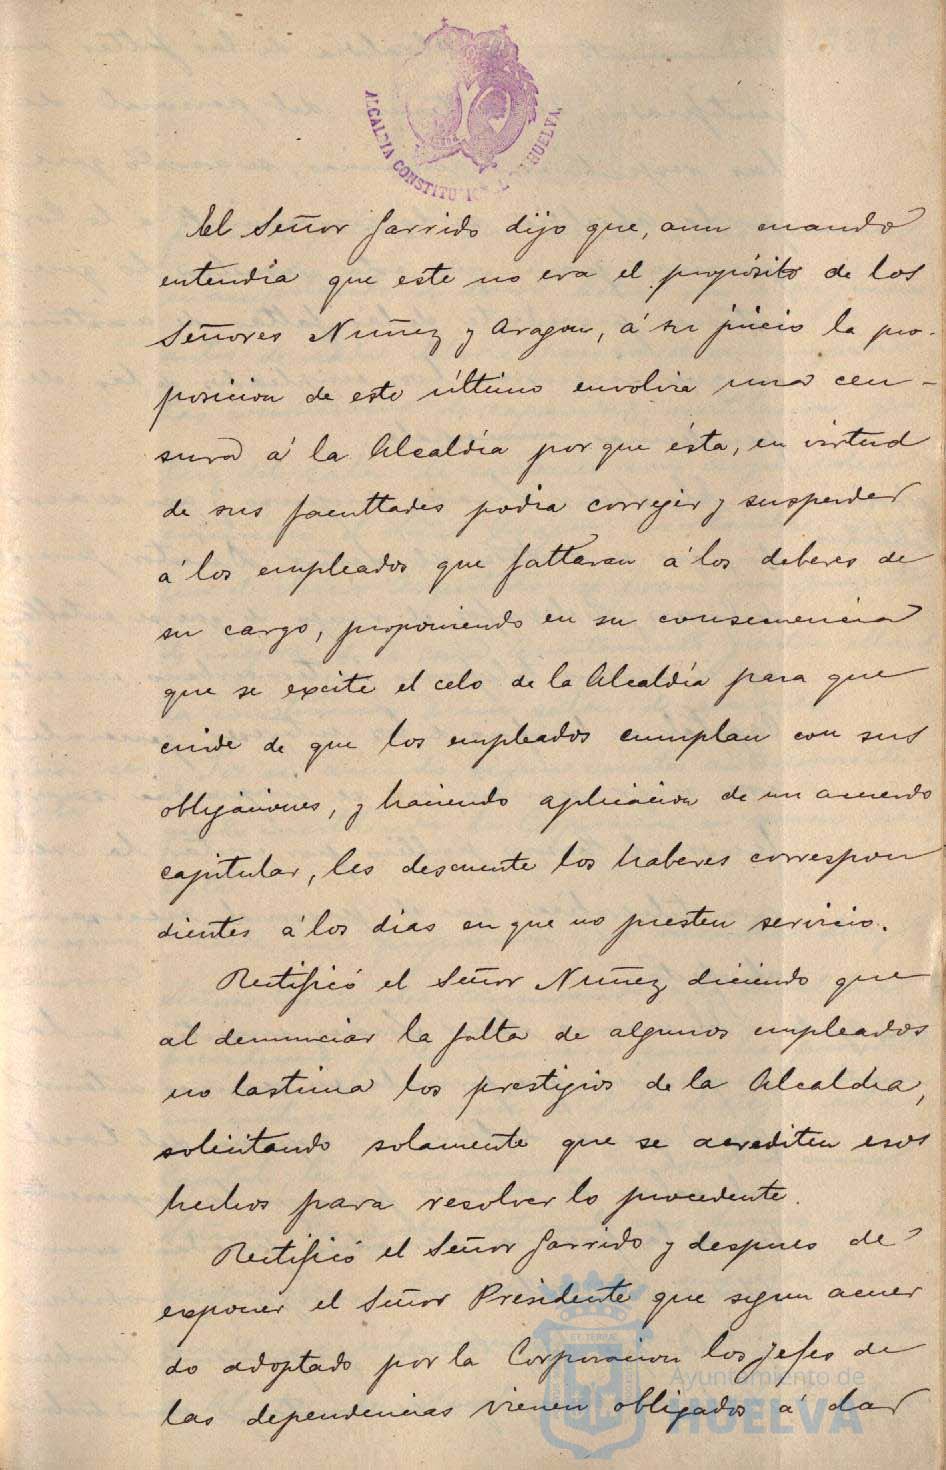 ALCALDIA CONSTITUCIONAL DE HUELVA.
El Señor Garrido dijo que, aun cuando
entendía que este no era el propósito de los
Señores Nuñez y Aragon, á su juicio la pro-
posicion de este último envolvia una cen-
sura á la Alcaldía porque ésta, en virtud
de sus facultades podia correjir y suspender
á los empleados que faltaran á los deberes de
su cargo, proponiendo en su consecuencia
que se excite el celo de la Alcaldía para que
cuide de que los empleados cumplan con sus
obligaciones, y haciendo aplicacion de un acuerdo
capitular, les descuente los haberes correspon
dientes á los dias en que no presten servicio.
Rectificó el Señor Nuñez diciendo que
al denunciar la falta de algunos empleados
no lastima los prestigios de la Alcaldia,
solicitando solamente que se acrediten esos
hechos para resolver lo procedente.
Rectificó el Señor Garrido y despues de
exponer el Señor Presidente que segun acuer
do adoptado por la Corporacion los jefes de
las dependencias vienen obligados á dar
Ayuntamiento de
HUELVA